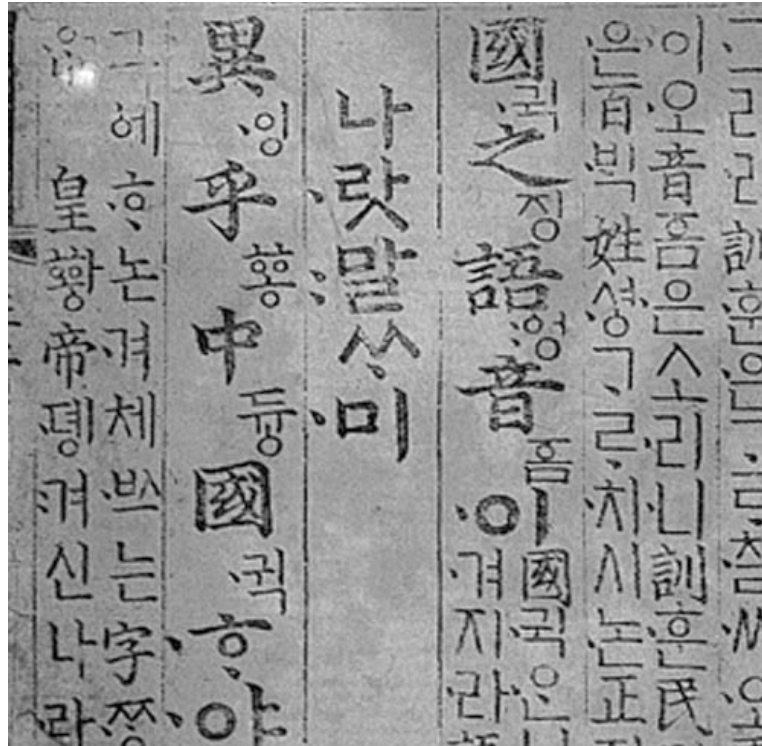 訓훈은
이오音ᅙᅳᆷ은소리니訓훈民
은百ᄇᆡᆨ姓셔ᇰᄀᆞᄅᆞ치시논正
國귁之징語ᅌᅥᆼ音ᅙᅳᆷ이
國귁은
겨지라
나랏말ᄊᆞ미
異잉乎ᅘᅩᆼ中듀ᇰ國귁ᄒᆞ야
그ᅌᅦᄒᆞ논겨체ᄡᅳ는字ᄍᆞᆼ
皇ᅘᅪᇰ帝뎽겨신나라